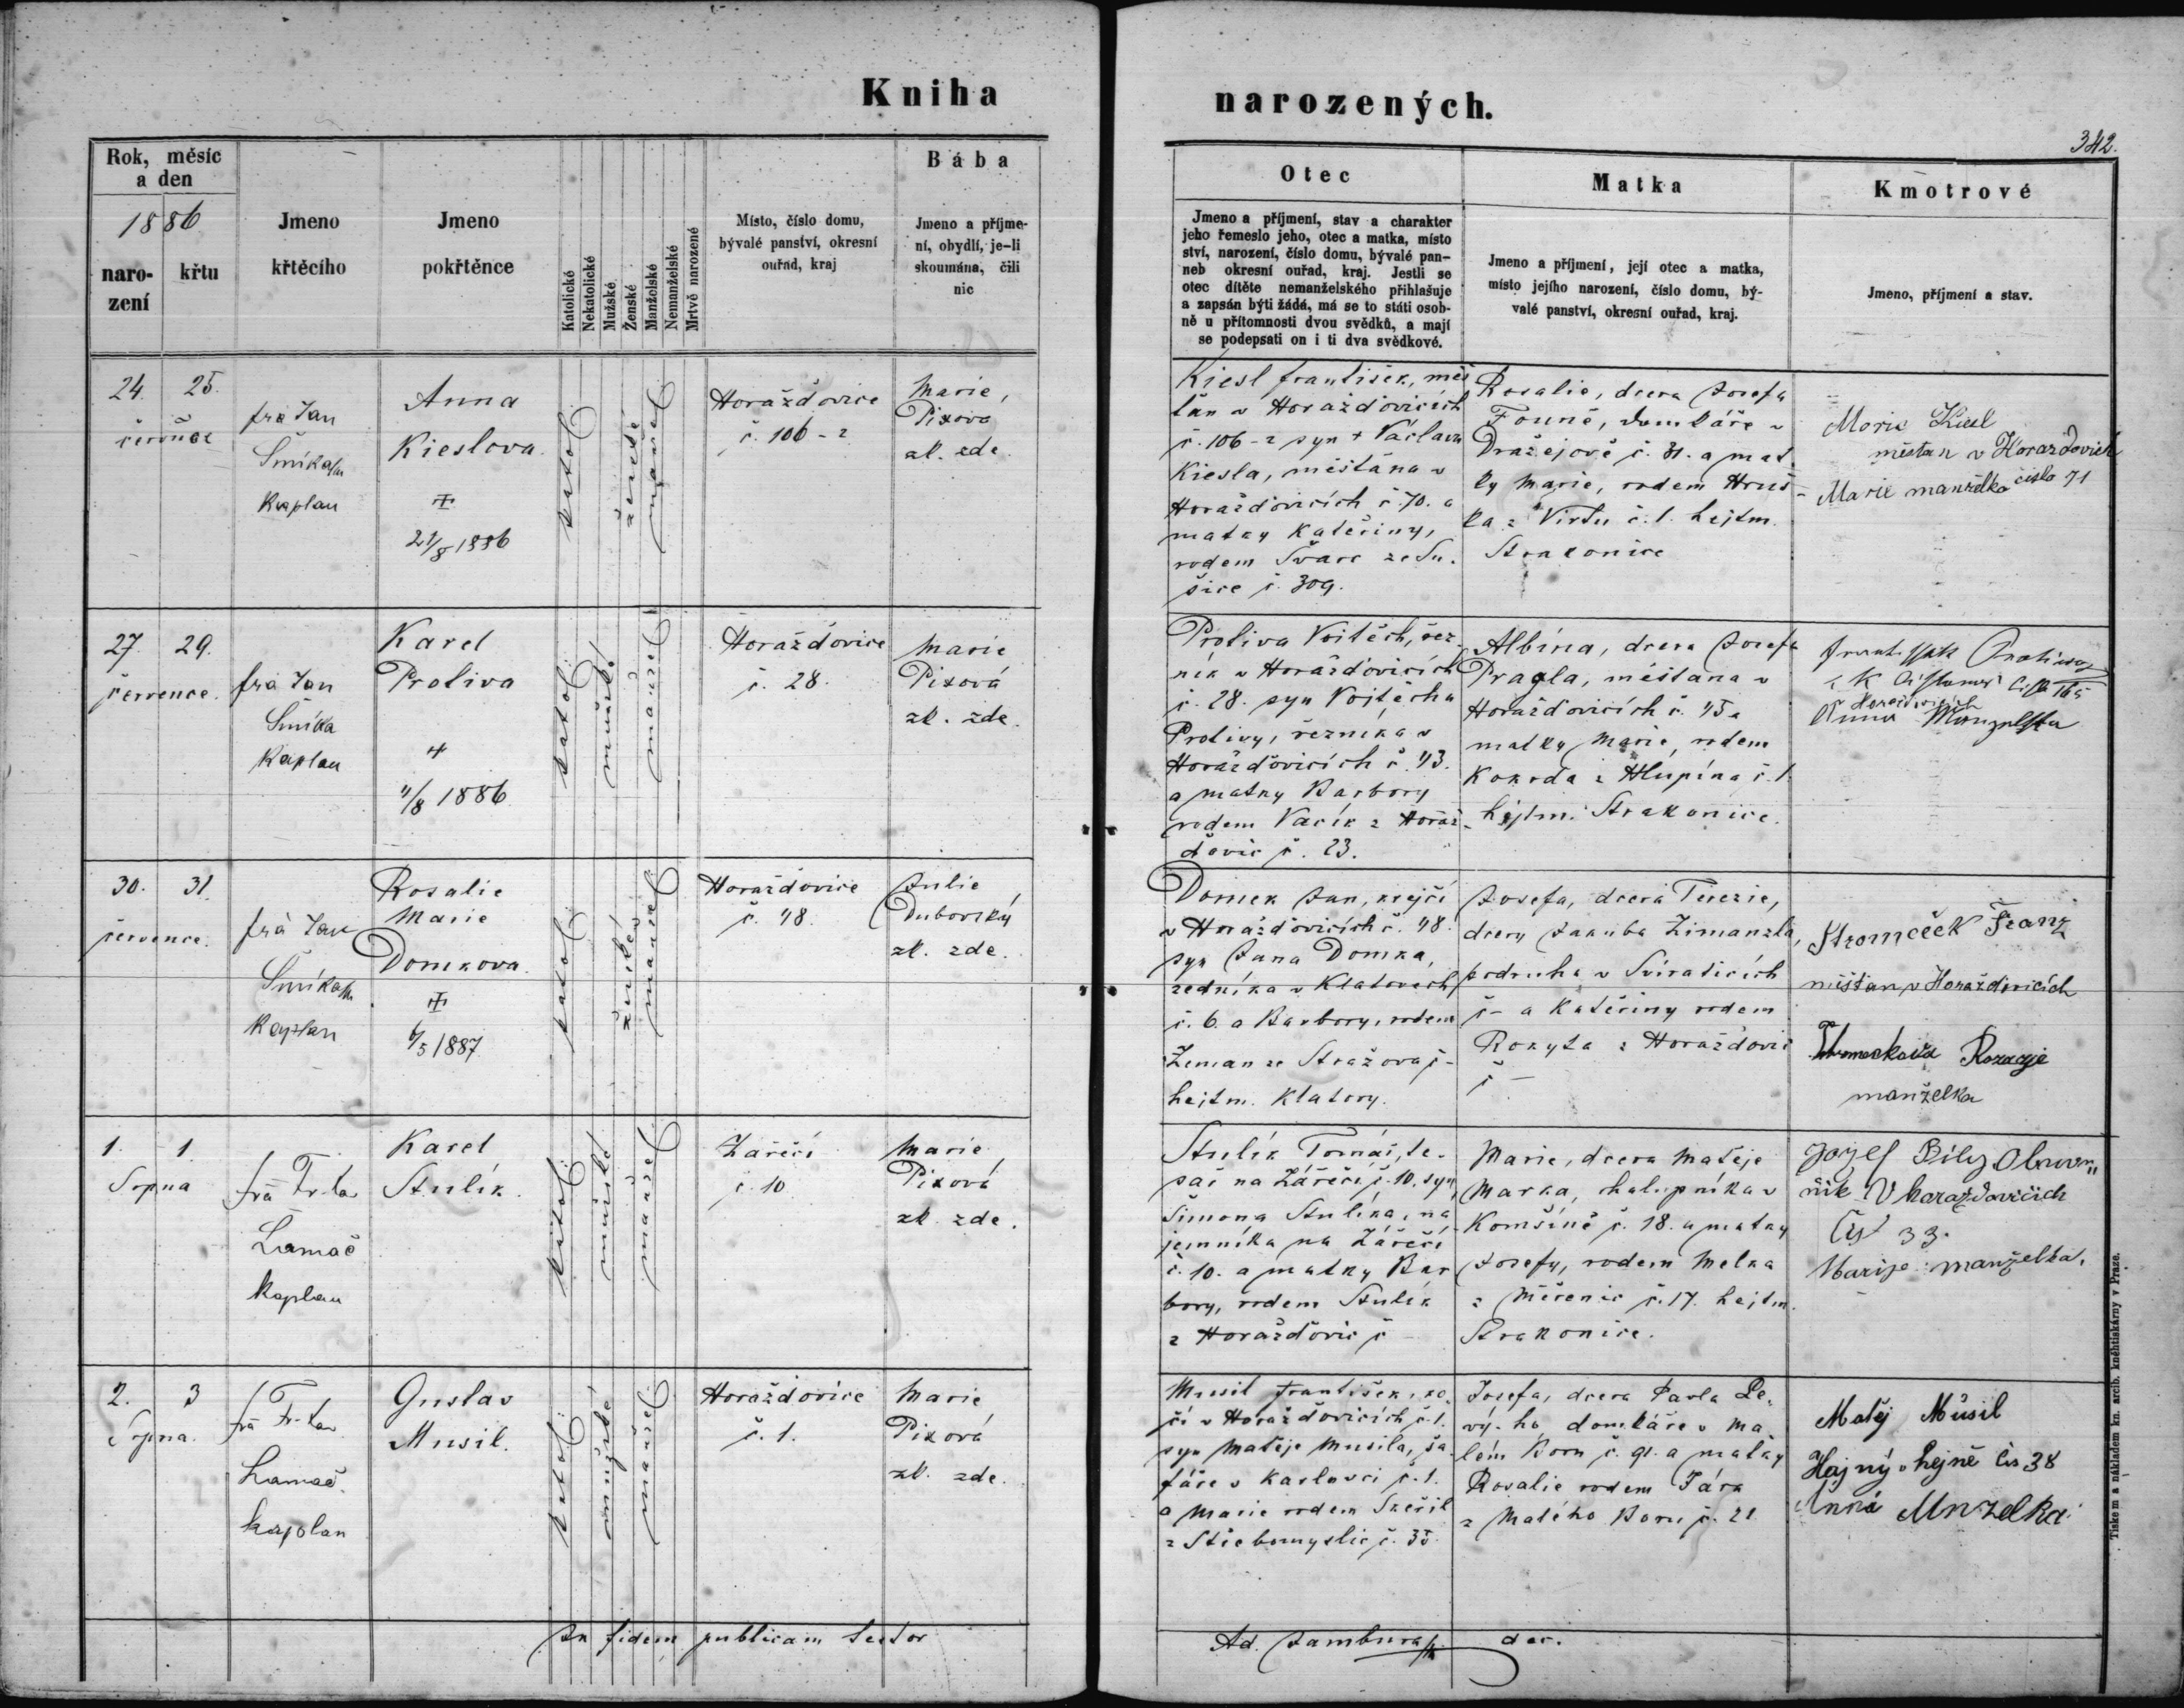 Kniha
narozených.
342.
Rok, měsíc
a den
1886
naro-
zení
křtu
Jmeno
křtěcího
Jmeno
pokřtěnce
Katolické
Nekatolické
Mužské
Ženské
Manželské
Nemanželské
Mrtvě narozené
Místo, číslo domu,
bývalé panství, okresní
ouřad, kraj
Bába
Jmeno a příjme-
ní, obydlí, je-li
skoumána, čili
nic
Otec
Jmeno a příjmení, stav a charakter
jeho řemeslo jeho, otec a matka, místo
ství, narození, číslo domu, bývalé pan-
neb okresní ouřad, kraj. Jestli se
otec dítěte nemanželského přihlašuje
a zapsán býti žádá, má se to státi osob-
ně u přítomnosti dvou svědků, a mají
se podepsati on i ti dva svědkové.
Matka
Jmeno a příjmení, její otec a matka,
místo jejího narození, číslo domu, bý-
valé panství, okresní ouřad, kraj.
Kmotrové
Jmeno, příjmení a stav.
24. 25.
červnaz
frà Jan
Šmíka
Kaplan
Anna
Kieslova
21/8 1886
katol.
ženské
manžel
Horažďovice
č. 106-2
Marie,
Pixova
zk. zde.
Kiesl František, měš
ťan v Horažďovicích
č. 106-2 syn + Václava
Kiesla, měšťana v
Horažďovicích č. 70. a
matky Kateřiny,
rodem Švarc ze Su-
šice č. 309.
Rosalie, dcera Josefa
Founě, domkáře v
Dražejově č. 31. a mat
ky Marie, rodem Hruš-
ka z Virtu č. 1. hejtm.
Strakonice
Moric Kiesl
měštan v Horaždovich
čislo 71
Marie manželka
27. 29.
července.
frà Jan
Šmíka
Kaplan
Karel
Protiva
11/8 1886
katol.
mužsk.
manžel
Horažďovice
č. 28.
Marie
Pixová
zk. zde.
Protiva Vojtěch, řez-
ník v Horažďovicích
č. 28. syn Vojtěcha
Protivy, řezníka v
Horažďovicích č. 43.
a matky Barbory
rodem Vacík z Horaž-
ďovic č. 23.
Albína, dcera Josefa
Pragla, měšťana v
Horažďovicích č. 45 a
matky Marie, rodem
Kokoda z Hlupína č. 1
hejtm. Strakonice.
Protiva
165
Anna
30. 31.
července.
frà Jan
Šmíka
Kaplan
Rosalie
Marie
Domkova
6/5 1887
katol.
ženské
manžel
Horažďovice
č. 48.
Julie
Dubovský
zk. zde.
Domek Jan, krejčí
v Horažďovicích č. 48.
syn Jana Domka,
zedníka v Klatovech
č. 6. a Barbory, rodem
Zeman ze Stražova č-
hejtm. Klatovy.
Josefa, dcera Terezie,
dcery Jakuba Zimanzla,
podruha v Sviraticích
č- a Kateřiny rodem
Rokyta z Horažďovic
č-
Stromcěek Franz
měštan v Horaždovicích
Stromečkova Rozarje
manželka
1. 1.
Srpna
frà Fr.
Lamač
kaplan
Karel
Stulík
katol.
mužské
manžel
Zářečí
č. 10
Marie
Pixová
zk zde.
Stulík Tomáš, te-
sař na Zářečí č. 10. syn
Šimona Stulíka, ná
jemníka na Zářečí
č. 10. a matky Bar
bory, rodem Stulík
z Horažďovic č
Marie, dcera Matěje
Marka, chalupníka v
Komšíně č. 18. a matky
Josefy, rodem Melka
z Měčenic č. 17. hejtm.
Strakonice.
Jozef Bily Obuv
nik V horaždovicich
Čis 33.
Marije manželka.
2. 3
Srpna.
frà Fr.
Lamač
kaplan
Gustav
Musil.
katol.
mužské
manžel
Horažďovice
č. 1.
Marie
Pixová
zk. zde.
Musil František, ko
čí v Horažďovicích č. 1.
syn Matěje Musila, ša
fáře v Karlovci č. 1.
a Marie rodem Skeřil
z Střebomyslic č. 35.
Josefa, dcera Pavla Le-
vý-ho domkáře v Ma
lém Boru č. 91. a matky
Rosalie rodem Jára
z Malého Boru č. 21
Matěj Můsil
Hajný v hejně čis 38
Anná Mnzelka
In fidem publicam testor
Ad. Jambura
Tiskem a nákladem kn. arcib. kněhtiskárny v Praze.